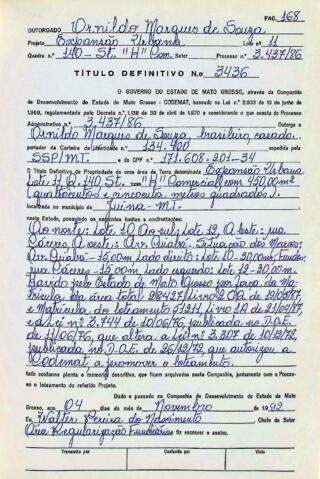 PAG. 168
OUTORGADO Ornildo Marques de Souza
Projeto Expansão Urbana Lote nº 11
Quadra n.º 140-St. "H" Com. Setor Processo n.º 3.437/86
TÍTULO DEFINITIVO N.o 3436
O GOVERNO DO ESTADO DE MATO GROSSO, através da Companhia
de Desenvolvimento do Estado de Mato Grosso - CODEMAT, baseado na Lei n.º 2.903 de 10 de junho de
1969, regulamentado pelo Decreto n.º 1.138 de 30 de abril de 1970 e considerando o que consta do Processo
Administrativo n.º 3.437/86 Outorga a
Ornildo Marques de Souza, brasileiro, casado,
portador da Carteira de Identidade n.º 134.400 expedida pela
SSP/MT. e do CPF n.º 171.608.201-34
O Título Definitivo, de Propriedade de uma área de Terra denominada Expansão Urbana
Lote 11 Q. 140, St. "H" Comercial, com 450,00m²
(quatrocentos e cinquenta metros quadrados).
localizada no município de Juína-MT.
neste Estado, possuindo os seguintes limites e confrontações:
Ao norte: Lote 10, Ao sul: Lote 12, A leste: rua
Cáceres, A oeste: Av. Cuiabá. Situação dos Marcos:
Av. Cuiabá-15,00m, Lado direito: Lote 10-30,00m, Fundos:
rua Cáceres-15,00m, Lado esquerdo: Lote 12-30,00m.
Havido pelo Estado de Mato Grosso por força da Ma-
trícula da área total: 28427, Livro 2
e Matrícula do loteamento Livro 1A de 21/04/87
e a Lei nº 3.744 de 10/06/76, publicada no D.O.E.
de 11/06/76, que altera a Lei nº 3.307 de 18/12/72,
publicada no D.O.E. de 26/12/72, que autorizou a
Codemat, a promover o loteamento.
tudo conforme planta e memorial descritivo, que ficam arquivados nesta Companhia, juntamente com o Processo
e o loteamento do referido Projeto.
Dado e passado na Companhia de Desenvolvimento do Estado de Mato
Grosso, aos 04 dias do mês de Novembro de 1992
Eu, Walter Pereira do Nascimento Chefe do Setor
Área Regularização Fundiária fiz escrever e assino.
Transcrito por
Conferido por
Visto